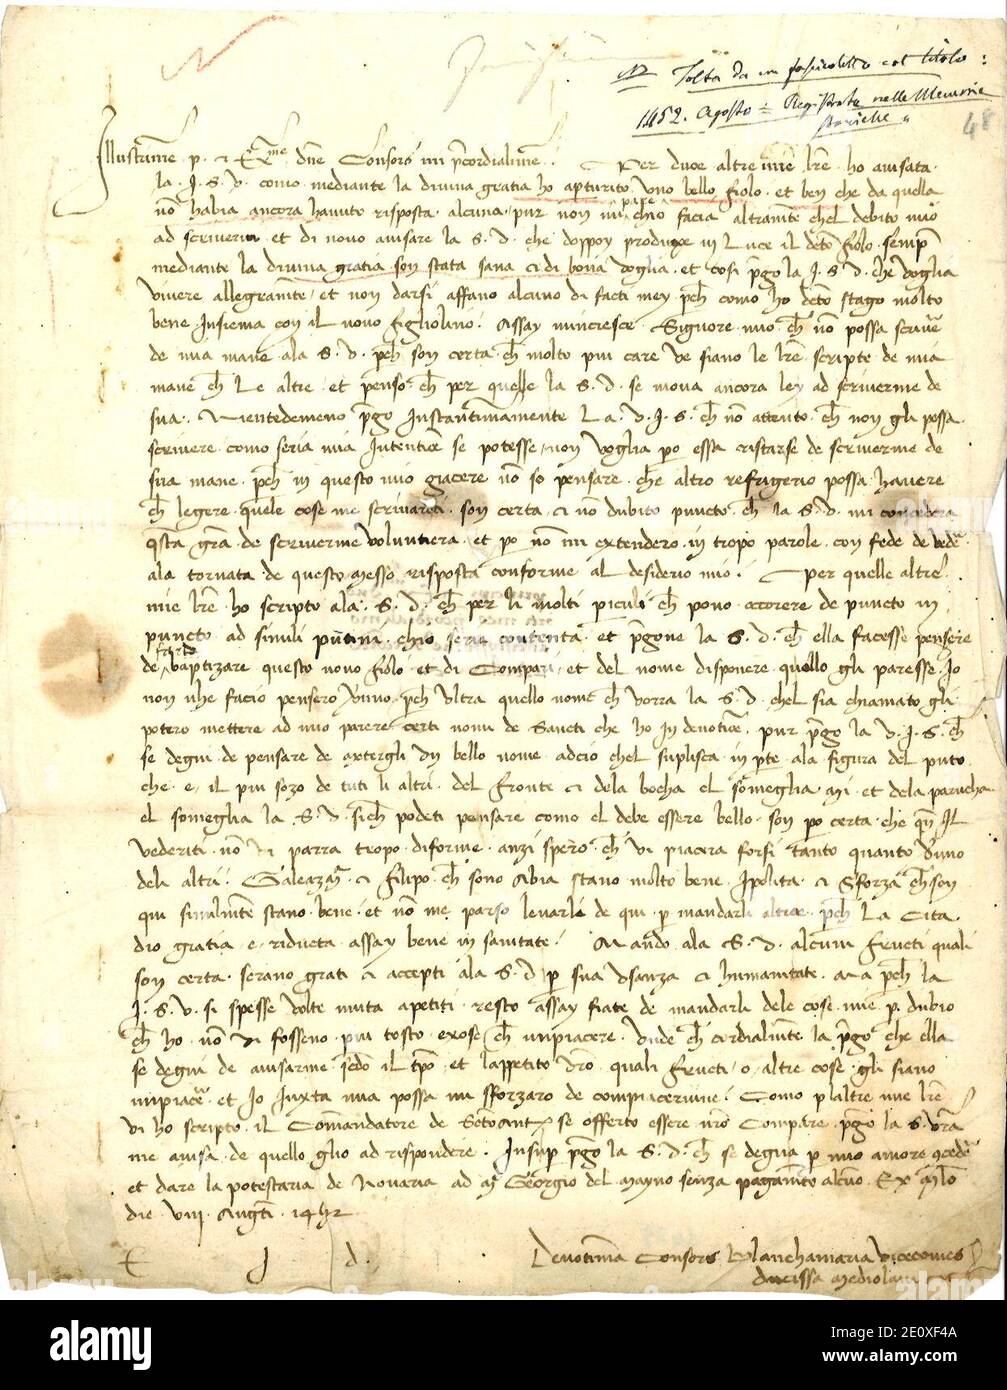 NB Tolta da un fascicoletto col titolo:
1452. Agosto = Registrata nelle Memorie
storiche "
48
Illustrime p. et Exme dne Consors mi precordialime. Per duce altre mie lre ho avisata
la I. S. V. como mediante la divina gratia ho aperturito uno bello fiolo. et ben che da quella
nō habia ancora havuto risposta alcuna, pur non mi pare chio facia altramte chel debito mio
ad scriverin et di novo avisare la S. V. che doppoy produxe in luce il dcto fiolo. sempr
mediante la divina gratia son stata sana et di bona voglia. et cosi pgo la I. S. V. che voglia
vivere allegramte, et non darsi affano alcuno di facti mey pch como ho dcto stago molto
bene insiema con il novo figliolino. Assay mincresce Signore mio ch nō possa scrive
de mia mane ala S. V. pch son certa ch molto piu care ve siano le lre scripte de mia
mane ch le altre et penso ch per quelle la S. V. se mova ancora ley ad scriverme de
sua. Nientedemeno pgo instantimamente la V. I. S. ch nō attento ch non gli possa
scrivere como seria mia intentioe se potesse, non voglia po essa ristarse de scriverme de
sua mane. pch in questo mio giacere nō so pensare che altro refrigerio possa havere
ch legere quele cose me scrivareti. son certa et nō dubito puncto ch la S. V. mi concedera
qsta gra de scriverme voluntiera. et po nō mi extendero in tropo parole. con fede de vede
ala tornata de questo messo risposta conforme al desiderio mio. Per quelle altre
mie lre ho scripto ala S. V. ch per li molti piculi ch pono occorere de puncto in
puncto ad simili putini. chio seria contenta et pgone la S. V. ch ella facesse pensere
de far baptizare questo novo fiolo et di Compari, et del nome disponere quello gli paresse. Io
non nhe facio pensero veruno pch ultra quello nome ch vorra la S. V. chel sia chiamato gli
potero mettere ad mio parere certi nomi de Sancti che ho in devotioe. pur pgo la V. I. S. ch
se degni de pensare de metergli un bello nome adcio chel suplisca in pte ala figura del puto
che e il piu sozo de tuti li altri. del fronte et dela bocha el someglia mi et dela parucha
el someglia la S. V. sich podeti pensare como el debe essere bello. son po certa che qn Il
vederiti nō vi parra tropo diforme. anzi spero ch vi piacera forsi tanto quanto veruno
deli altri. Galeazo et Filipo ch sono Abia stano molto bene. Ipolita et Sforza ch son
qui similmte stano bene. et nō me parso levarli de qui p mandarli altroe pch la Cita
dio gratia e riducta assay bene in sanitate. Mando ala S. V. alcuni fructi quali
son certa serano grati et accepti ala S. V. p sua usanza et humanitate. Ma pch la
I. S. V. si spesse volte muta apetiti resto assay fiate de mandarli dele cose mie p. dubio
ch ho nō vi fosseno piu tosto exose ch impiacere. Onde ch cordialmte la pgo che ella
se degni de avisarme sedo il tpo et lappetito vro quali fructi, o altre cose gli siano
impiacer et Io iuxta mia possa mi sforzaro de compiacermine. Como p laltre mie lre
vi ho scripto il Comandatore de Scto Anto se offerto essere nro Compare. pgo la S. vra
me avisa de quello glio ad rispondere. Insup pgo la S. V. ch se degna p mio amore cede
et dare la potestaria de Novaria ad m Georgio del mayno senza pagamto alcuo. Ex Mlo
die viii Augti 1452
E J d. Devotima Consors Blanchamaria vicecomes
ducissa mediolani
alamy
Image ID: 2E0XF4A
www.alamy.com